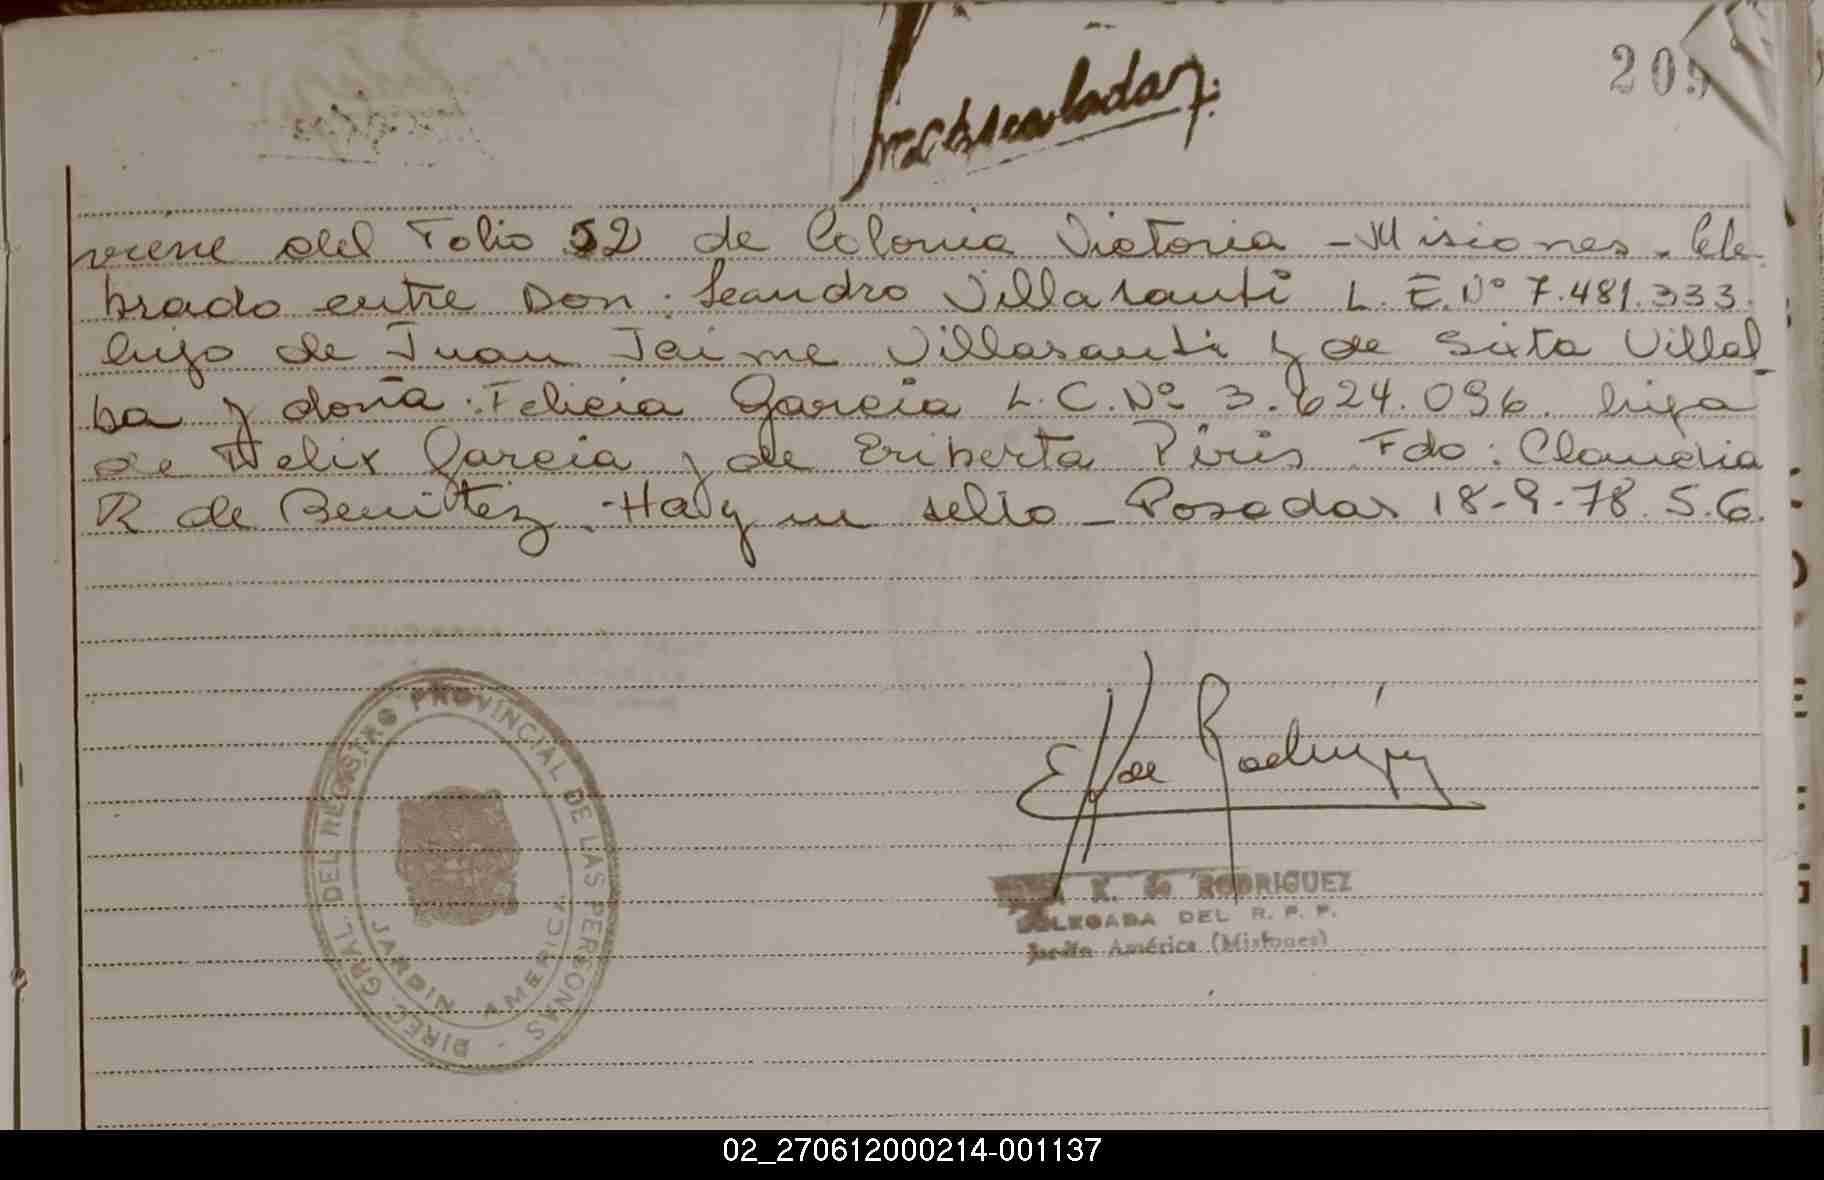 Inmaculada
viene del Folio 52 de Colonia Victoria - Misiones. Cele
brado entre Don. Leandro Villasanti L. E. Nº 7.481.333.
hijo de Juan Jaime Villasanti y de Sixta Villal
ba y doña. Felicia Garcia L. C. Nº 3.624.096. hija
de Felix Garcia y de Eriberta Piris Fdo: Claudia
R de Benitez. Hay un sello - Posadas 18-9-78. S.G.
DIREC. GRAL. DEL REGISTRO PROVINCIAL DE LAS PERSONAS -
JARDIN AMERICA
de Rodriguez
K. de RODRIGUEZ
DELEGADA DEL R. P. P.
Jardín América (Misiones)
02_270612000214-001137